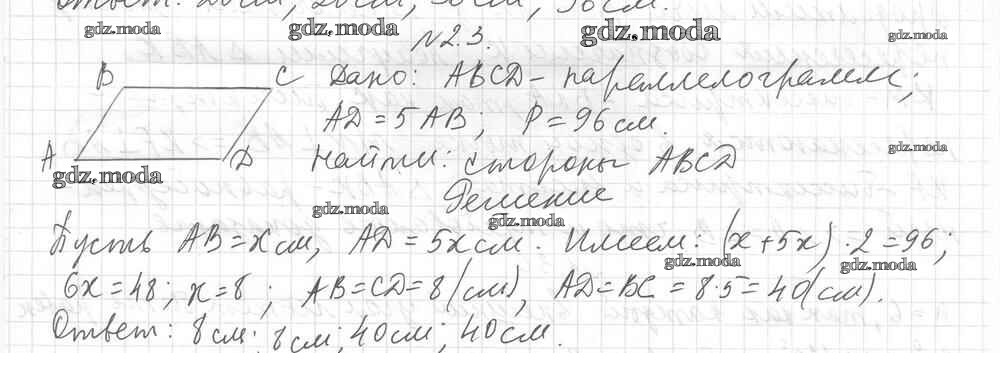 Ответ: 20см, 20см,
gdz.moda gdz.moda gdz.moda gdz.moda
№2.3.
B C Дано: ABCD - параллелограмм;
AD = 5AB; P = 96 см.
gdz.moda
A D Найти: стороны ABCD
gdz.moda
Решение
gdz.moda gdz.moda
Пусть AB = x см, AD = 5x см. Имеем: (x + 5x) · 2 = 96;
gdz.moda gdz.moda
6x = 48; x = 8; AB = CD = 8 (см), AD = BC = 8·5 = 40 (см).
Ответ: 8 см; 8 см; 40 см; 40 см.